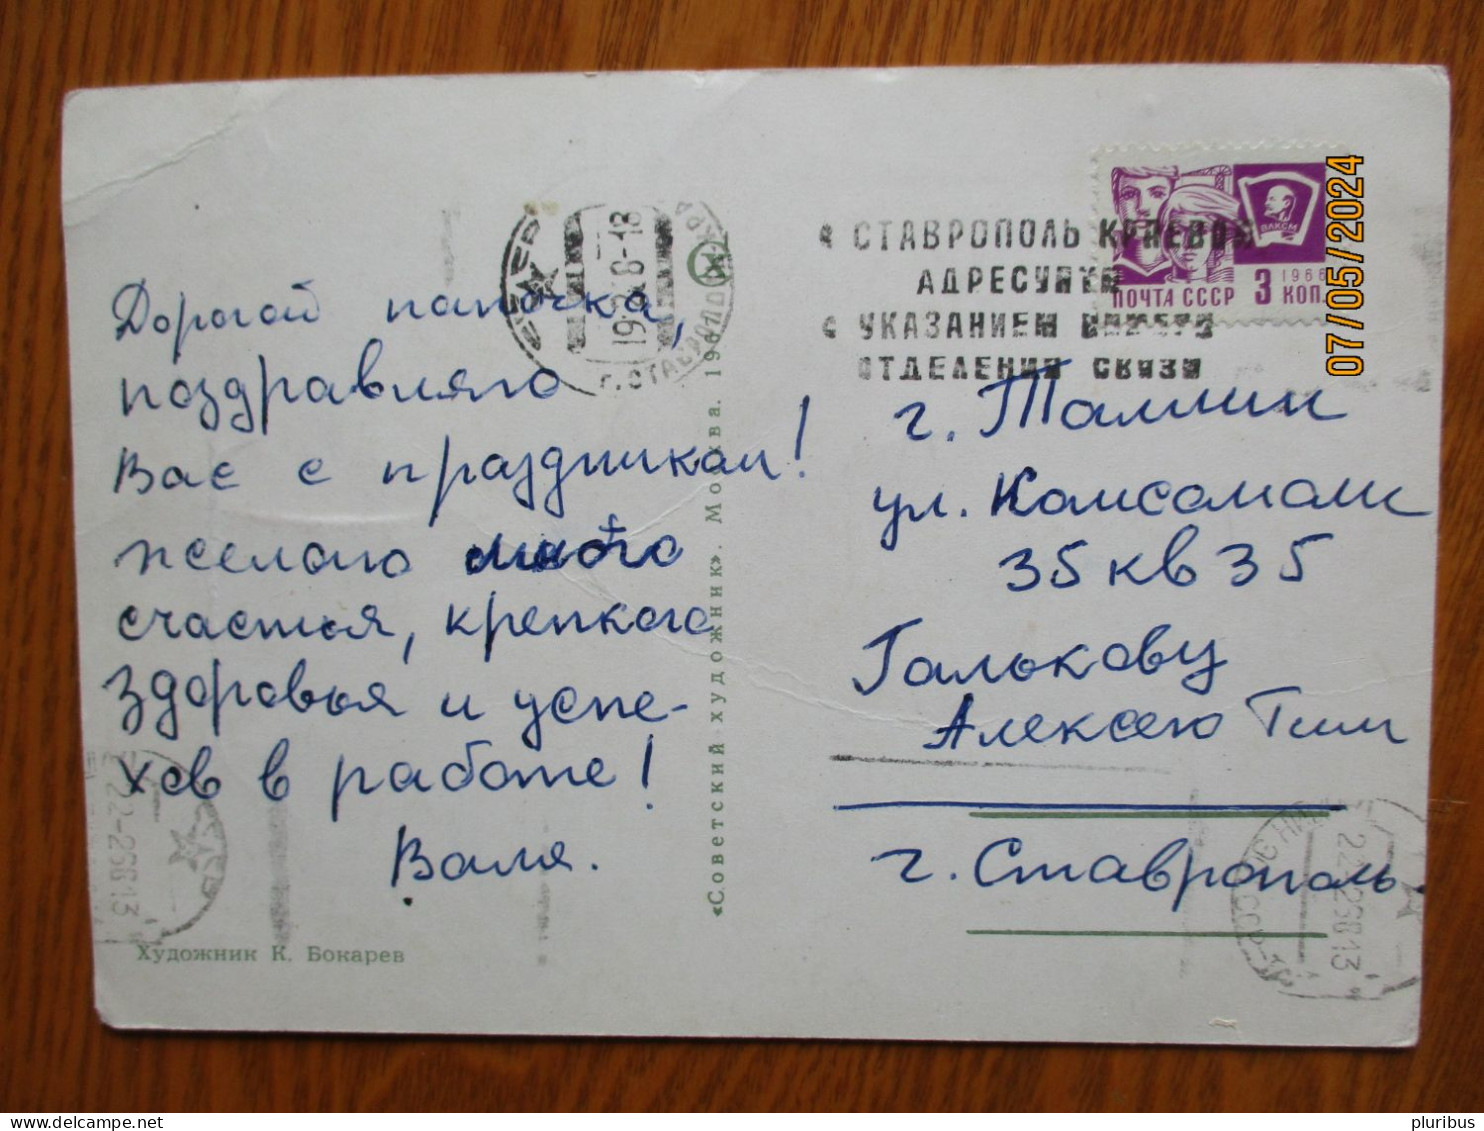 Дорогой папочка,
поздравляю
Вас с праздником!
желаю много
счастья, крепкого
здоровья и успе-
хов в работе!
Валя.
Художник К. Бокарев
«Советский художник». Москва. 1967
СТАВРОПОЛЬ КРАЕВОЙ
АДРЕСУЙТЕ
УКАЗАНИЕМ НОМЕРА
ОТДЕЛЕНИЯ СВЯЗИ
ВЛКСМ
1966
ПОЧТА СССР 3 КОП
г. Таллин
ул. Комсомоли
35 кв 35
Галькову
Алексею Тим
г. Ставрополь
07/05/2024
pluribus